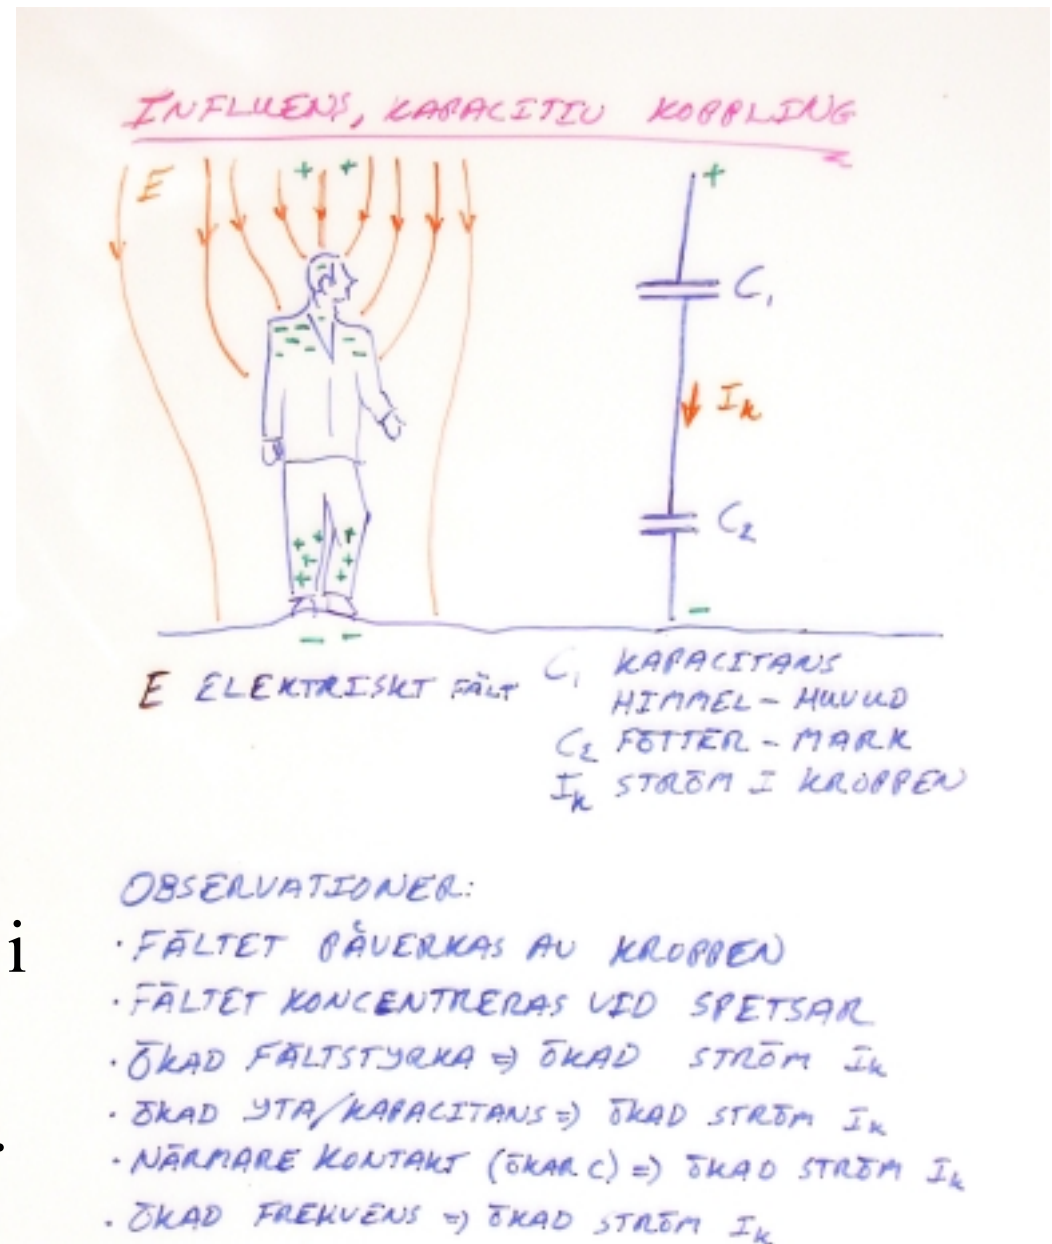 INFLUENS, KAPACITIV KOPPLING
E
+ +
+
C₁
Iₖ
C₂
-
- -
E ELEKTRISKT FÄLT
C₁ KAPACITANS
HIMMEL - HUVUD
C₂ FÖTTER - MARK
Iₖ STRÖM I KROPPEN
OBSERVATIONER:
i
· FÄLTET PÅVERKAS AV KROPPEN
· FÄLTET KONCENTRERAS VID SPETSAR
· ÖKAD FÄLTSTYRKA => ÖKAD STRÖM Iₖ
· ÖKAD YTA/KAPACITANS => ÖKAD STRÖM Iₖ
.
· NÄRMARE KONTAKT (ÖKAR C) => ÖKAD STRÖM Iₖ
· ÖKAD FREKVENS => ÖKAD STRÖM Iₖ